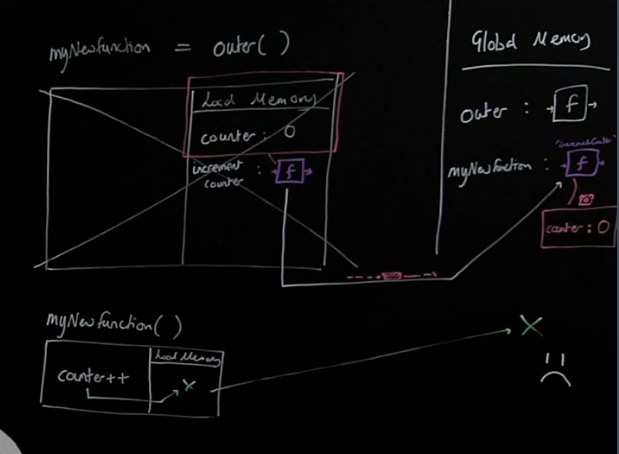 myNewfunction = outer( )
Local Memory
counter : 0
increment
counter : f
Global Memory
outer : f
"incrementCounter"
myNewfunction : f
counter : 0
myNewfunction( )
Local Memory
counter++